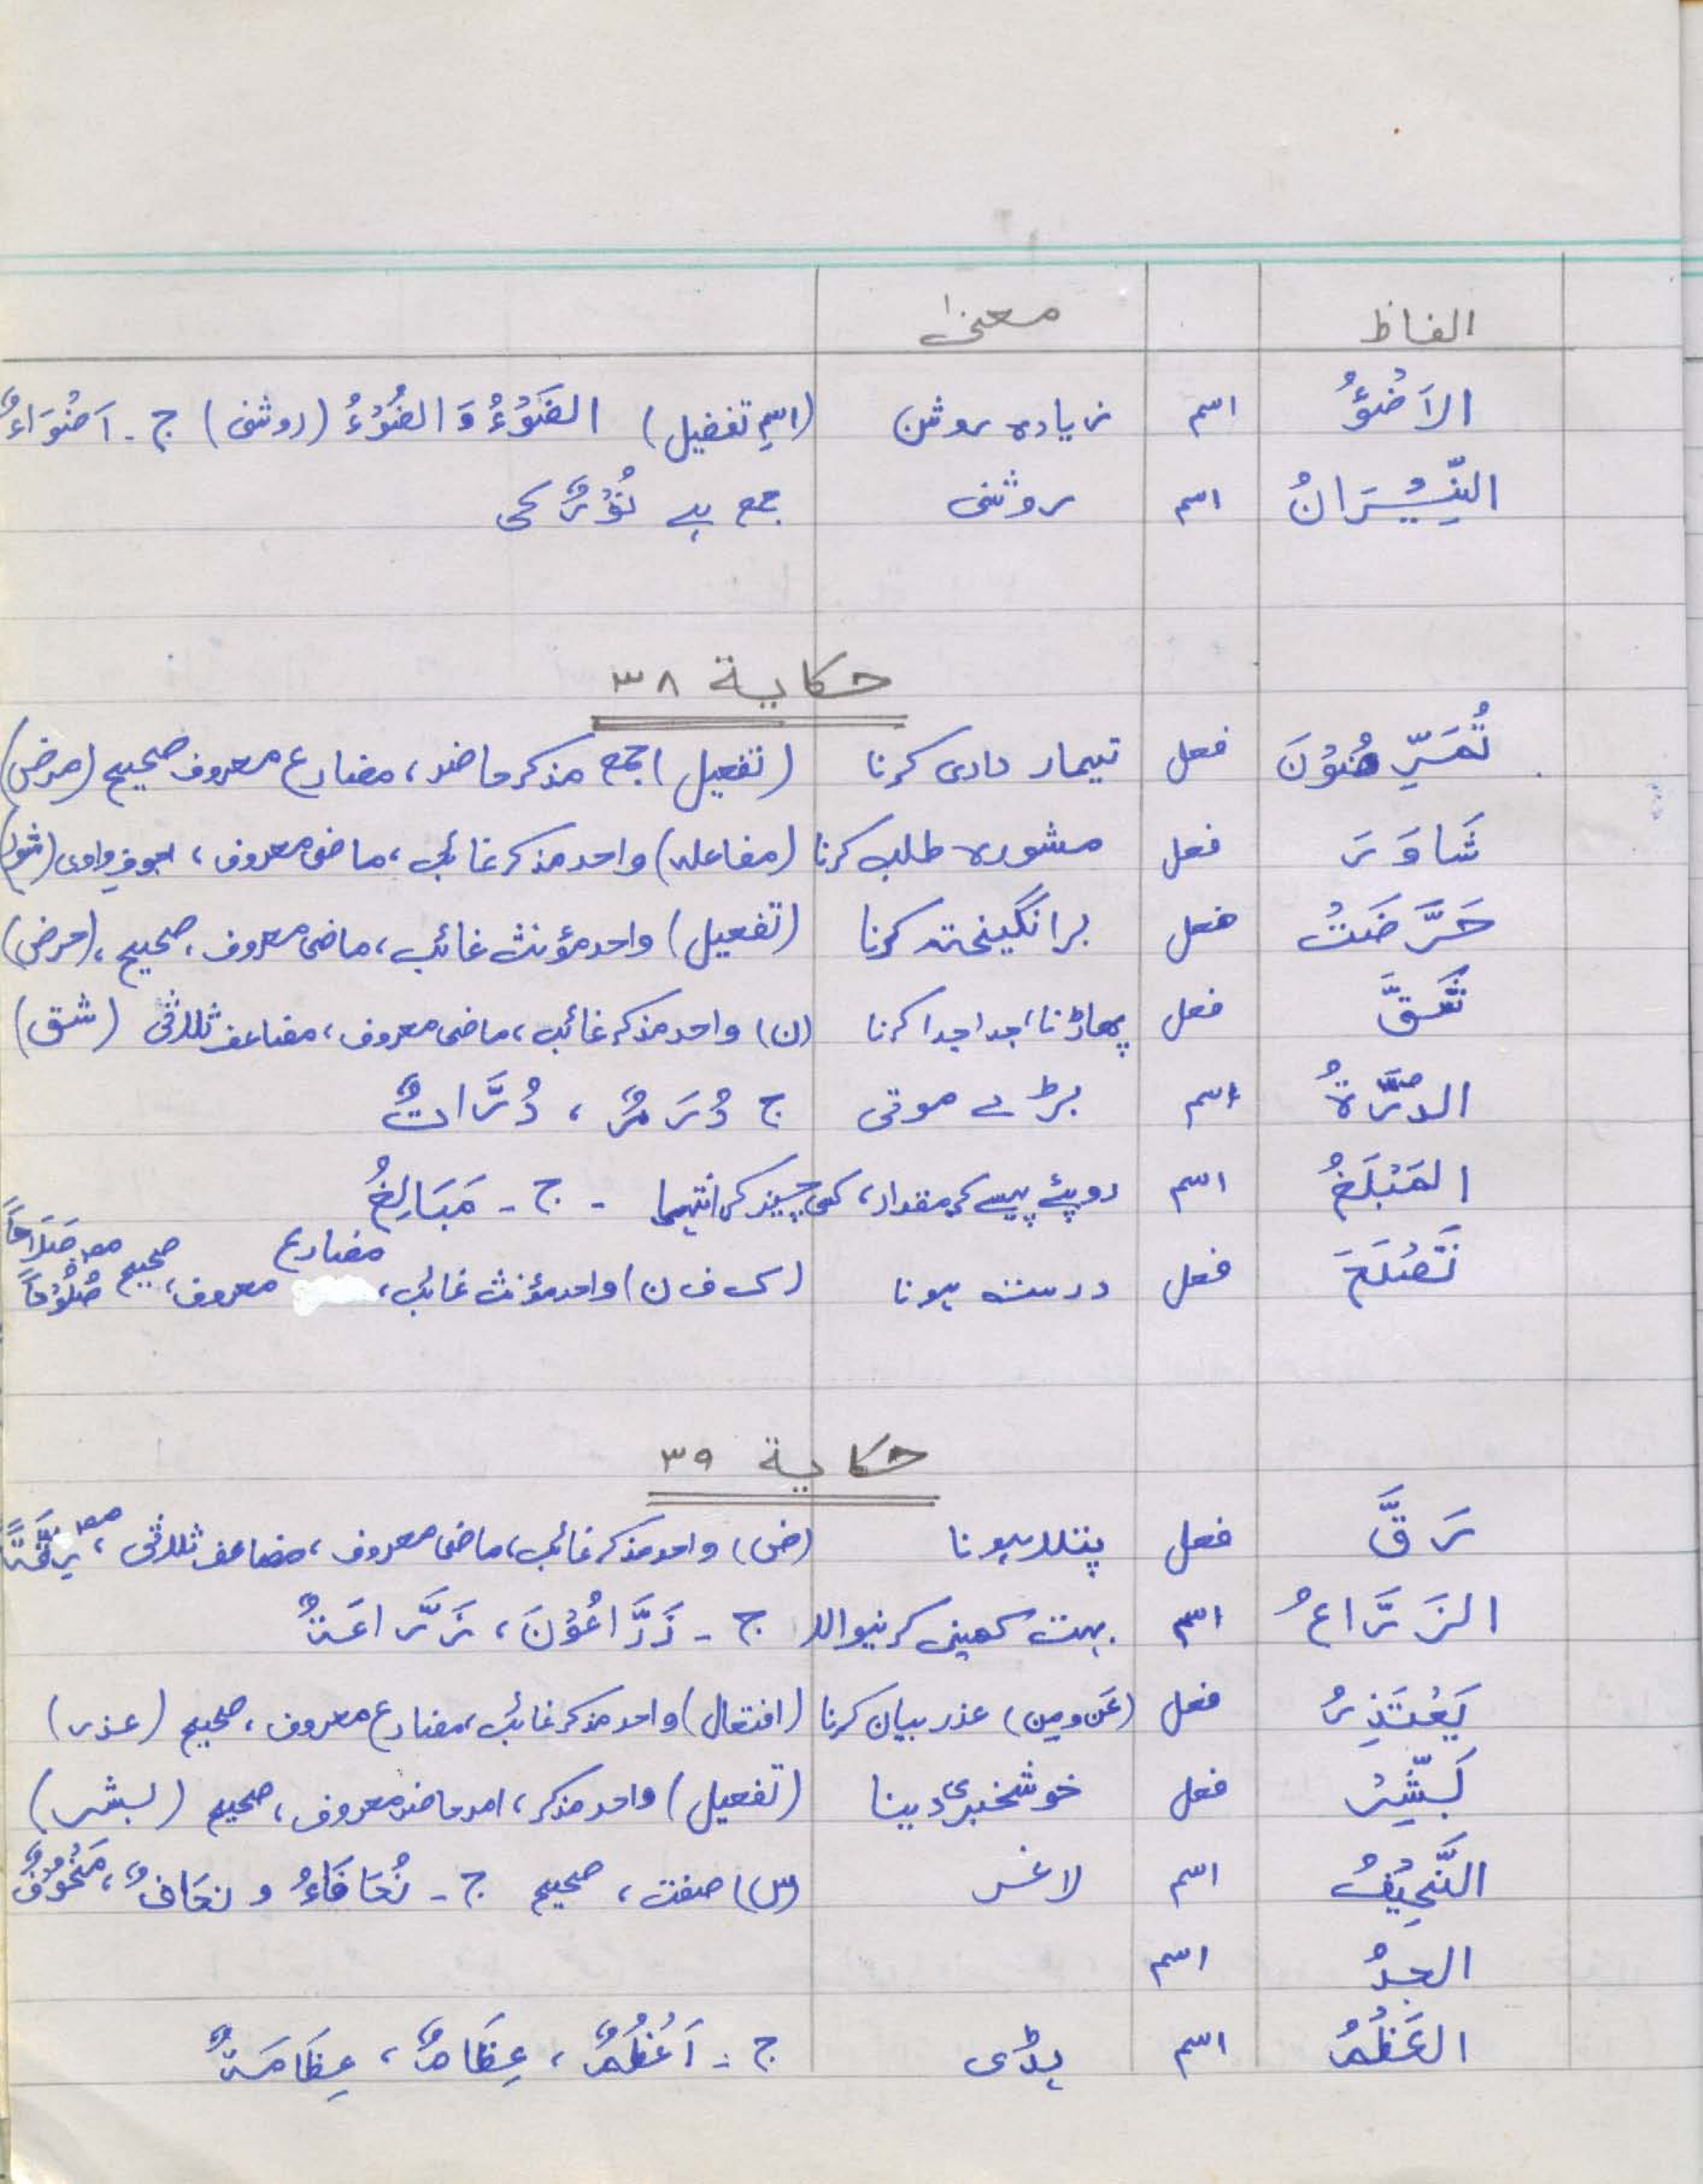 الفاظ معنیٰ
الاَضْوَؤُ اسم زیادہ روشن (اسمِ تفضیل) الضَوْءُ وَ الضُوْءُ (روشنی) ج - اَضْوَاءٌ
النِّیْرَانُ اسم روشنی جمع ہے نُوْرٌ کی
حکایة ٣٨
تُمَرِّضُوْنَ فعل تیمار داری کرنا (تفعیل) جمع مذکر حاضر، مضارع معروف صحیح (مرض)
شَاوَرَ فعل مشورہ طلب کرنا (مفاعلہ) واحد مذکر غائب، ماضی معروف، اجوف واوی (شور)
حَرَّضَتْ فعل برانگیختہ کرنا (تفعیل) واحد مؤنث غائب، ماضی معروف، صحیح، (حرض)
شَقَّ فعل پھاڑنا، جدا جدا کرنا (ن) واحد مذکر غائب، ماضی معروف، مضاعف ثلاثی (شق)
الدُرَّةُ اسم بڑے موتی ج دُرَرٌ، دُرَّاتٌ
المَبْلَغُ اسم روپئے پیسے کی مقدار، کسی چیز کی انتہا - ج - مَبَالِغُ
تَصْلَحَ فعل درست ہونا (ک ف ن) واحد مؤنث غائب، مضارع معروف، صحیح مص صَلَاحًا صُلُوْحًا
حکایة ٣٩
رَقَّ فعل پتلا ہونا (ض) واحد مذکر غائب، ماضی معروف، مضاعف ثلاثی، مص رِقَّةً
الزَرَّاعُ اسم بہت کھیتی کرنیوالا ج - زَرَّاعُوْنَ، زَرَّاعَةٌ
يَعْتَذِرُ فعل (عَن ومِن) عذر بیان کرنا (افتعال) واحد مذکر غائب، مضارع معروف، صحیح (عذر)
بَشِّرْ فعل خوشخبری دینا (تفعیل) واحد مذکر، امر حاضر معروف، صحیح (بشر)
النَّحِیْفُ اسم لاغر (س) صفت، صحیح ج - نُحَافَاءُ و نحَافٌ، مَنْحُوْفٌ
الجدُ اسم
العَظْمُ اسم ہڈی ج - اَعْظُمٌ، عِظَامٌ، عِظَامَةٌ